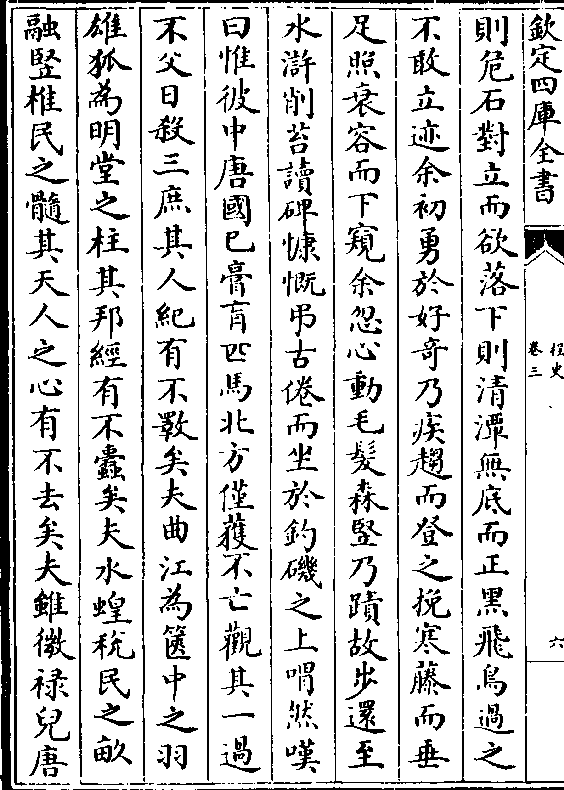 欽定四庫全書
桯史
卷三
六
則危石對立而欲落下則清潭無底而正黑飛鳥過之
不敢立迹余初勇於好奇乃疾趨而登之挽寒藤而垂
足照衰容而下窺余忽心動毛髮森竪乃蹟故步還至
水滸削苔讀碑慷慨弔古倦而坐於釣磯之上喟然嘆
曰惟彼中唐國已膏肓匹馬北方僅獲不亡觀其一過
不父日殺三庶其人紀有不斁矣夫曲江為篋中之羽
雄狐為明堂之柱其邦經有不蠧矣夫水蝗稅民之畝
融竪椎民之髓其天人之心有不去矣夫雖微祿兒唐